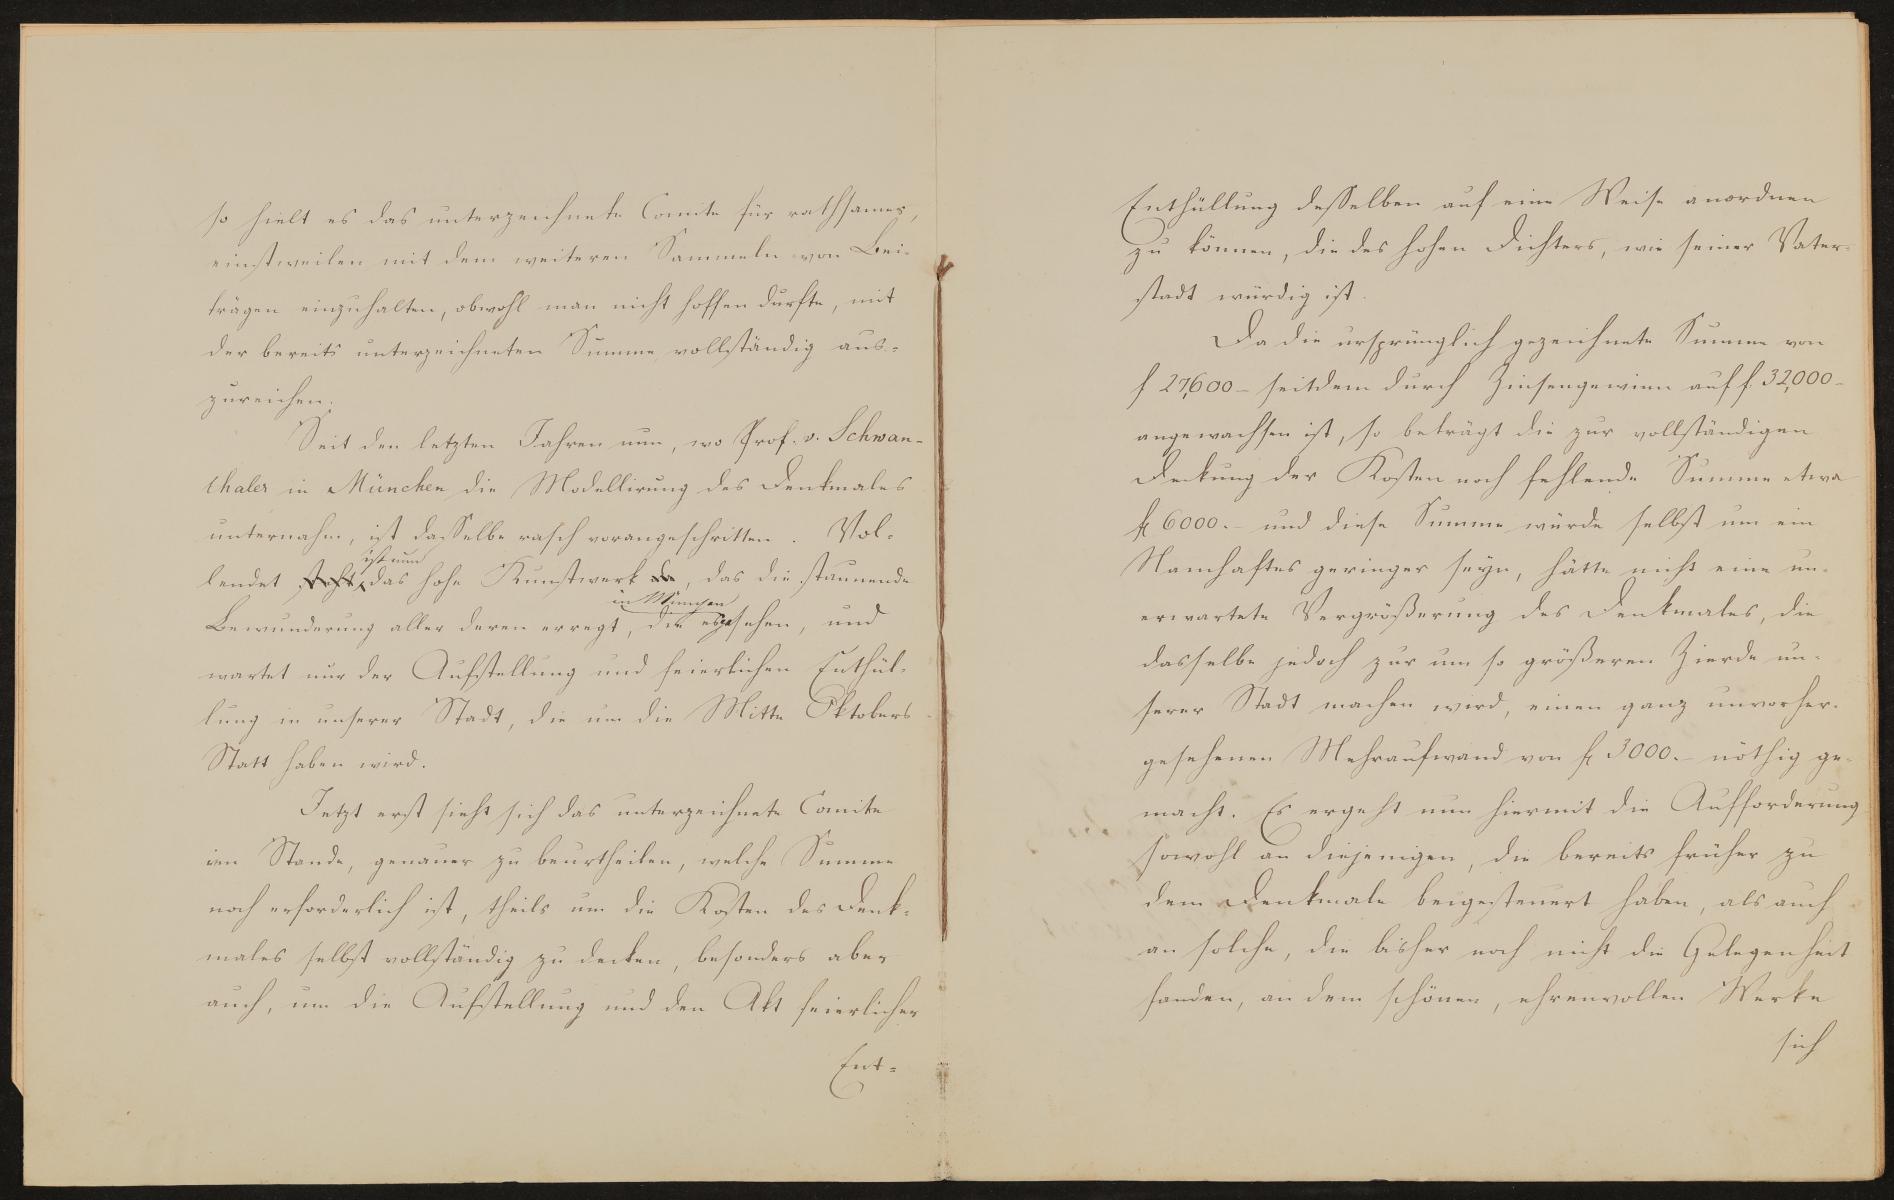 so hielt es das unterzeichnete Comite für rathsamer,
einstweilen mit dem weiteren Sammeln von Bei-
trägen einzuhalten, obwohl man nicht hoffen durfte, mit
der bereits unterzeichneten Summe vollständig aus-
zureichen.
Seit den letzten Jahren nun, wo Prof. v. Schwan-
thaler in München die Modellirung des Denkmales
unternahm, ist dasselbe rasch vorangeschritten. Vol-
ist nun
lendet steht das hohe Kunstwerk da, das die staunende
in München
Bewunderung aller deren erregt, die es sehen, und
wartet nur der Aufstellung und feierlichen Enthül-
lung in unserer Stadt, die um die Mitte Oktobers
Statt haben wird.
Jetzt erst sieht sich das unterzeichnete Comite
im Stande, genauer zu beurtheilen, welche Summe
noch erforderlich ist, theils um die Kosten des Denk-
males selbst vollständig zu decken, besonders aber
auch, um die Aufstellung und den Akt feierlicher
Ent-
Enthüllung desselben auf eine Weise anordnen
zu können, die des hohen Dichters, wie seiner Vater-
stadt würdig ist.
Da die ursprünglich gezeichnete Summe von
f 27,600 - seitdem durch Zinsengewinn auf f. 32,000 -
angewachsen ist, so beträgt die zur vollständigen
Deckung der Kosten noch fehlende Summe etwa
f 6000.- und diese Summe würde selbst um ein
Namhaftes geringer seyn, hätte nicht eine un-
erwartete Vergrößerung des Denkmales, die
dasselbe jedoch zur um so größeren Zierde un-
serer Stadt machen wird, einen ganz unvorher-
gesehenen Mehraufwand von f 3000.- nöthig ge-
macht. Es ergeht nun hiermit die Aufforderung
sowohl an diejenigen, die bereits früher zu
dem Denkmale beigesteuert haben, als auch
an solche, die bisher noch nicht die Gelegenheit
fanden, an dem schönen, ehrenvollen Werke
sich